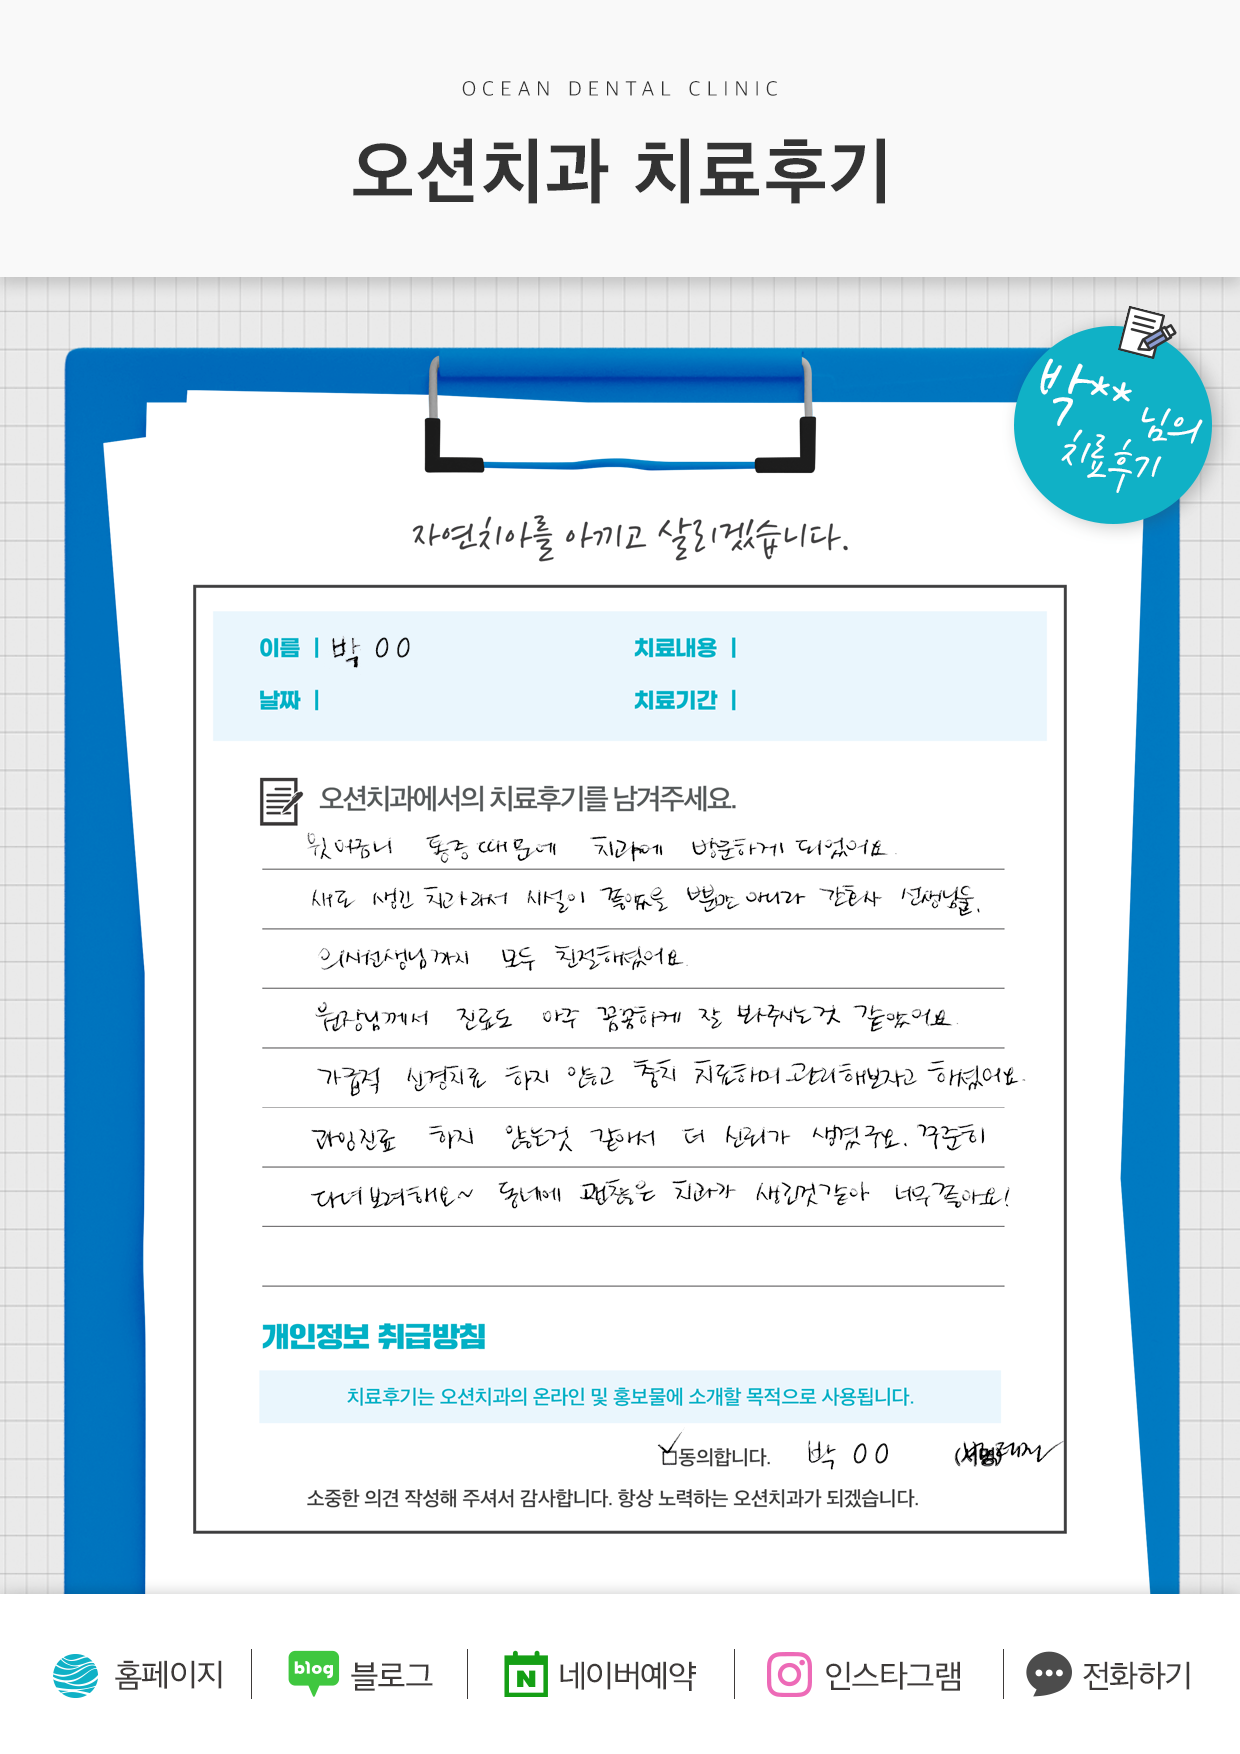 OCEAN DENTAL CLINIC
오션치과 치료후기
박** 님의
치료후기
자연치아를 아끼고 살리겠습니다.
이름 | 박 OO
치료내용 |
날짜 |
치료기간 |
오션치과에서의 치료후기를 남겨주세요.
윗어금니 통증 때문에 치과에 방문하게 되었어요.
새로 생긴 치과라서 시설이 좋았을 뿐만 아니라 간호사 선생님들,
의사선생님까지 모두 친절하셨어요.
원장님께서 진료도 아주 꼼꼼하게 잘 봐주시는것 같았어요.
가급적 신경치료 하지 않고 충치 치료하며 관리해보자고 하셨어요.
과잉진료 하지 않는것 같아서 더 신뢰가 생겼구요. 꾸준히
다녀보려해요~ 동네에 괜찮은 치과가 생긴것같아 너무 좋아요!
개인정보 취급방침
치료후기는 오션치과의 온라인 및 홍보물에 소개할 목적으로 사용됩니다.
동의합니다. 박 OO (서명)
소중한 의견 작성해 주셔서 감사합니다. 항상 노력하는 오션치과가 되겠습니다.
홈페이지
blog 블로그
N 네이버예약
인스타그램
전화하기